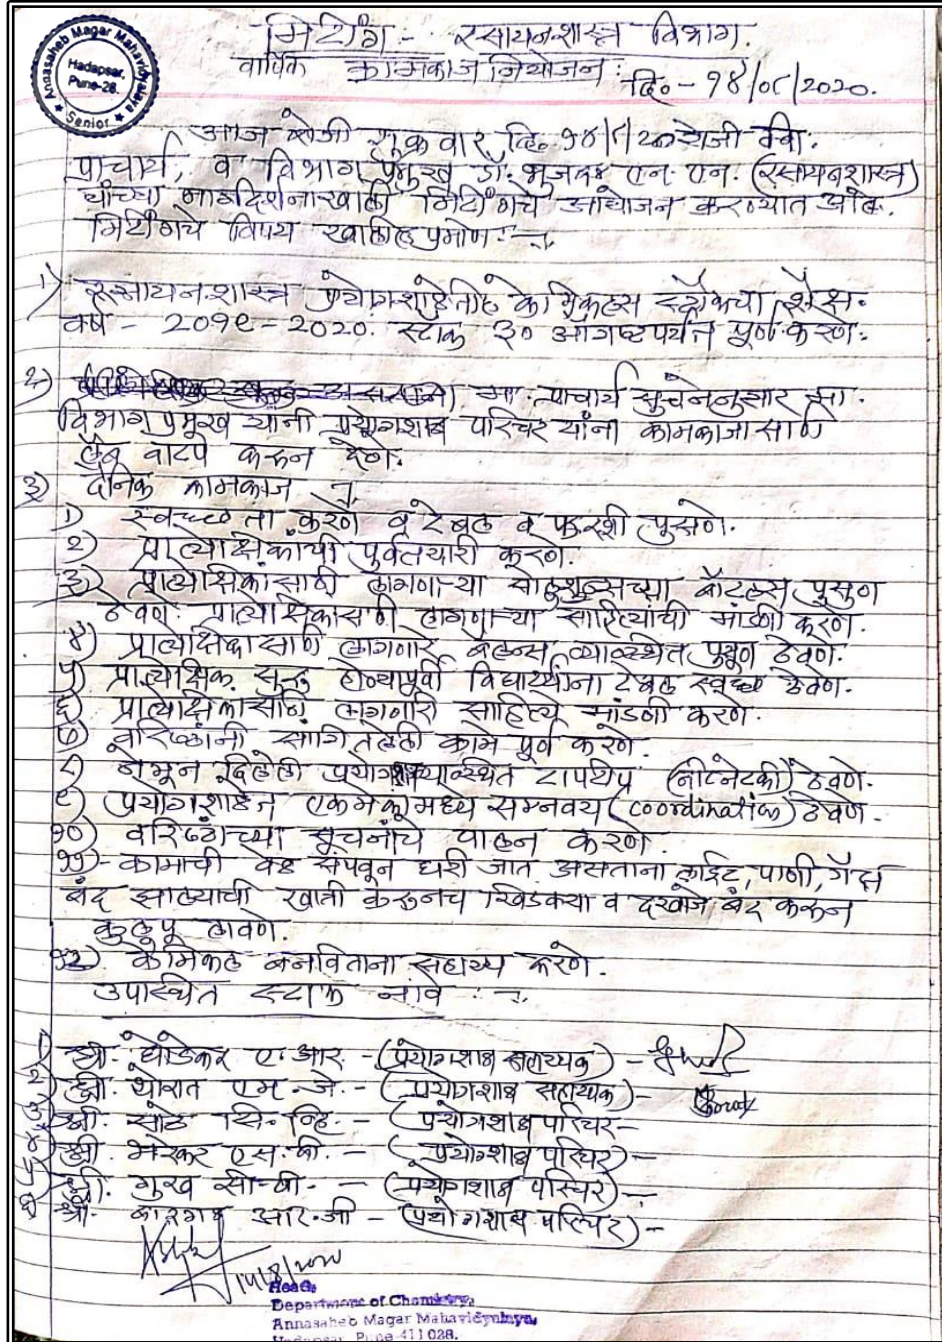 Annasaheb Magar Mahavidyalaya
Hadapsar,
Pune-28.
Senior
मिटींग :- रसायनशास्त्र विभाग.
वार्षिक कामकाज नियोजन :
दि. - १४/०८/२०२०.
आज रोजी शुक्रवार दि. १४/८/२० रोजी
प्राचार्य, व विभाग प्रमुख डॉ. भुजबळ एन. एन. (रसायनशास्त्र)
यांच्या मार्गदर्शनाखाली मिटींगचे आयोजन करण्यात आले.
मिटींगचे विषय खालील प्रमाणे :-
१) रसायनशास्त्र प्रयोगशाळेतील केमिकल्स स्टॉकच्या शैक्ष.
वर्ष - २०१९-२०२०. स्टॉक ३० ऑगष्टपर्यंत पूर्ण करणे.
२) मा. प्राचार्य सुचनेनुसार मा.
विभाग प्रमुख यांनी प्रयोगशाळा परिचर यांना कामकाजासाठी
लॅब वाटप करून देणे.
३) दैनिक कामकाज
१) स्वच्छता करणे व टेबल व फरशी पुसणे.
२) प्रात्येक्षिकांची पुर्वतयारी करणे.
३) प्रात्येक्षिकांसाठी लागणाऱ्या सोलुशन्सच्या बॉटल्स पुसुण
ठेवणे. प्रात्येक्षिकासाठी लागणाऱ्या साहित्यांची मांडणी करणे.
४) प्रात्येक्षिकासाठी लागणारे बॅलन्स व्यावस्थित पुसुण ठेवणे.
५) प्रात्येक्षिक सुरू होण्यापुर्वी विद्यार्थ्यांना टेबल स्वच्छ ठेवणे.
६) प्रात्येक्षिकासाठी लागणारी साहित्य मांडणी करणे.
७) वरिष्ठांनी सांगितलेली कामे पूर्ण करणे.
८) नेमून दिलेली व्यावस्थित टापटीप (नीटनेटकी) ठेवणे.
९) प्रयोगशाळेत एकमेकांमध्ये समनवय (coordination) ठेवणे.
१०) वरिष्ठांच्या सूचनांचे पालन करणे.
११) - कामाची वेळ संपवून घरी जात असताना लाईट, पाणी, गॅस
बंद झाल्याची खात्री करूनच खिडक्या व दरवाजे बंद करून
कुलूप लावणे.
१२) केमिकल बनविताना सहाय्य करणे.
उपास्थित स्टाफ नावे :-
१) श्री. घोडेकर ए. आर. - (प्रयोगशाळा सहाय्यक) -
२) श्री. थोरात एम. जे. - (प्रयोगशाळा सहाय्यक) -
३) श्री. साठे सि. व्हि. - (प्रयोगशाळा परिचर -
४) श्री. एस. बी. - (प्रयोगशाळा परिचर) -
५) श्री. सी. बी. - (प्रयोगशाळा परिचर) -
६) श्री. आर. जी - (प्रयोगशाळा परिचर) -
14/8/2020
Head,
Department of Chemistry,
Annasaheb Magar Mahavidyalaya,
Hadapsar, Pune-411028.